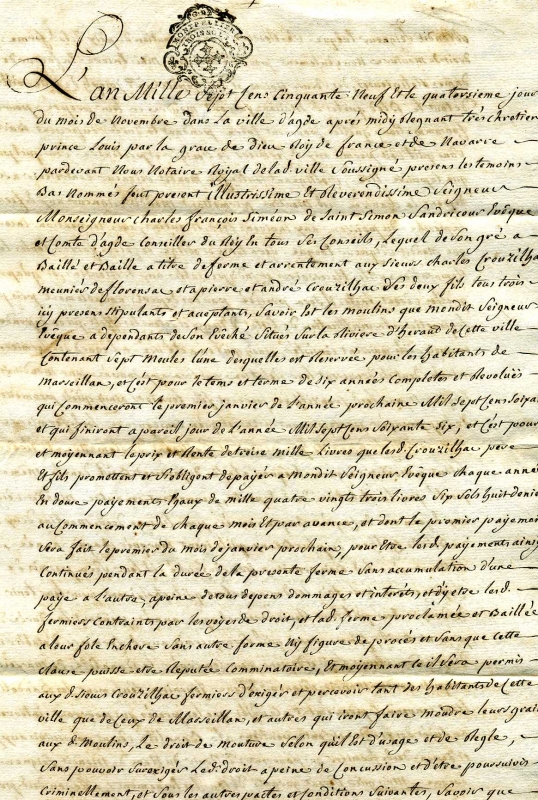 L'an Mille Sept Cens Cinquante Neuf Et le quatorsieme jour
du mois de Novembre dans La ville d'agde aprés midy Regnant trés chretien
prince Louis par la grace de dieu Roy de france et de Navarre
pardevant Nous Notaire Royal de lad. ville Soussigné presens les temoins
Bas Nommés feut present illustrissime Et Reverendissime Seigneur
Monseigneur charles françois Siméon de Saint Simon Sandricour Evêque
et Comte d'agde Conseiller du Roy En tous Ses Conseils, Lequel de Son gré a
Baillé et Baille a titre de ferme et arrentement aux Sieurs Charles Crouzilhac
meunier de florensac et a pierre et andré Crouzilhac Ses deux fils tous trois
icy presens stipulants et acceptants, Savoir Est les moulins que mondit Seigneur
Evêque a dependants de Son Evêché Situés Sur la Riviere d'heraud de Cette ville
Contenant Sept Meules l'une desquelles est Reservée pour les habitants de
Marseillan, et C'est pour le tems et terme de Six années Completes et Revolües
qui Commenceront Le premier janvier de L'année prochaine Mil Sept Cens Soixan
et qui finiront a pareil jour de L'année Mil Sept Cens Soixante Six, et C'est pour
et moyennant Le prix et Rente de treise mille Livres que lesd. Crouzilhac pere
Et fils promettent et S'obligent de payer a Mondit Seigneur Evêque Chaque anné
En douse payements Egaux de mille quatre vingts trois livres Six Sols huit denie
au Commencement de Chaque mois Et par avance, et dont Le premier payemen
Sera fait Le premier du Mois de janvier prochain, pour Etre lesd. payements ainsy
Continués pendant la durée de la presente ferme Sans accumulation d'une
paye a L'autre, a peine de tous depens dommages et interêts, et d'y etre lesd.
fermiers Contraints par les voyes de droit, et lad. ferme proclamée et Baillée
a leur fole Enchere Sans autre forme Ny figure de procés et Sans que Cette
Clause puisse etre Reputée Comminatoire, Et moyennant Ce il Sera permis
aux d. Sieurs Crouzilhac fermiers d'exiger et percevoir tant des habitants de Cette
ville que de Ceux de Marseillan, et autres qui iront faire moudre leurs grai
aux d. Moulins, Le droit de mouture Selon qu'il Est d'usage et de Regle,
Sans pouvoir Surexiger Led. droit a peine de Concussion et d'etre poursuivis
Criminellement, et Sous les autres pactes et Conditions Suivantes, Savoir que